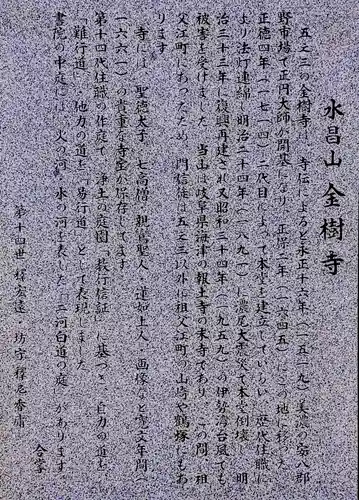 永昌山 金樹寺
五丈三の金樹寺は、寺伝によると永正十六年(一五一九)美濃の安八郡
野市場で正円大師が開基になり、正保二年(一六四五)にこの地に移り、
正徳四年(一七一四)二代目によって本堂を建立していらい、歴代住職に
より法灯連綿、明治二十四年(一八九一)に濃尾大震災で本堂倒壊し、明
治三十三年に復興再建され又昭和三十四年(一九五九)の伊勢湾台風でも
被害を受けました。当山は岐阜県海津の報土寺の末寺であり、この間、祖
父江町にあったため、門信徒は五丈三以外に祖父江町の山崎や鶴塚にもあ
ります。
寺には、聖徳太子、七高僧、親鸞聖人、蓮如上人、画像など寛文年間(
一六六一)の貴重な寺宝が保存してます。
第十四代住職の作庭で、浄土の庭園、教行信証に基づき、自力の道を
「難行道」、他力の道を「易行道」として表現しました。
書院の中庭には、火の河、水の河を表した「二河白道の庭」があります。
第十四世 釋宏達・坊守釋尼香庸
合掌